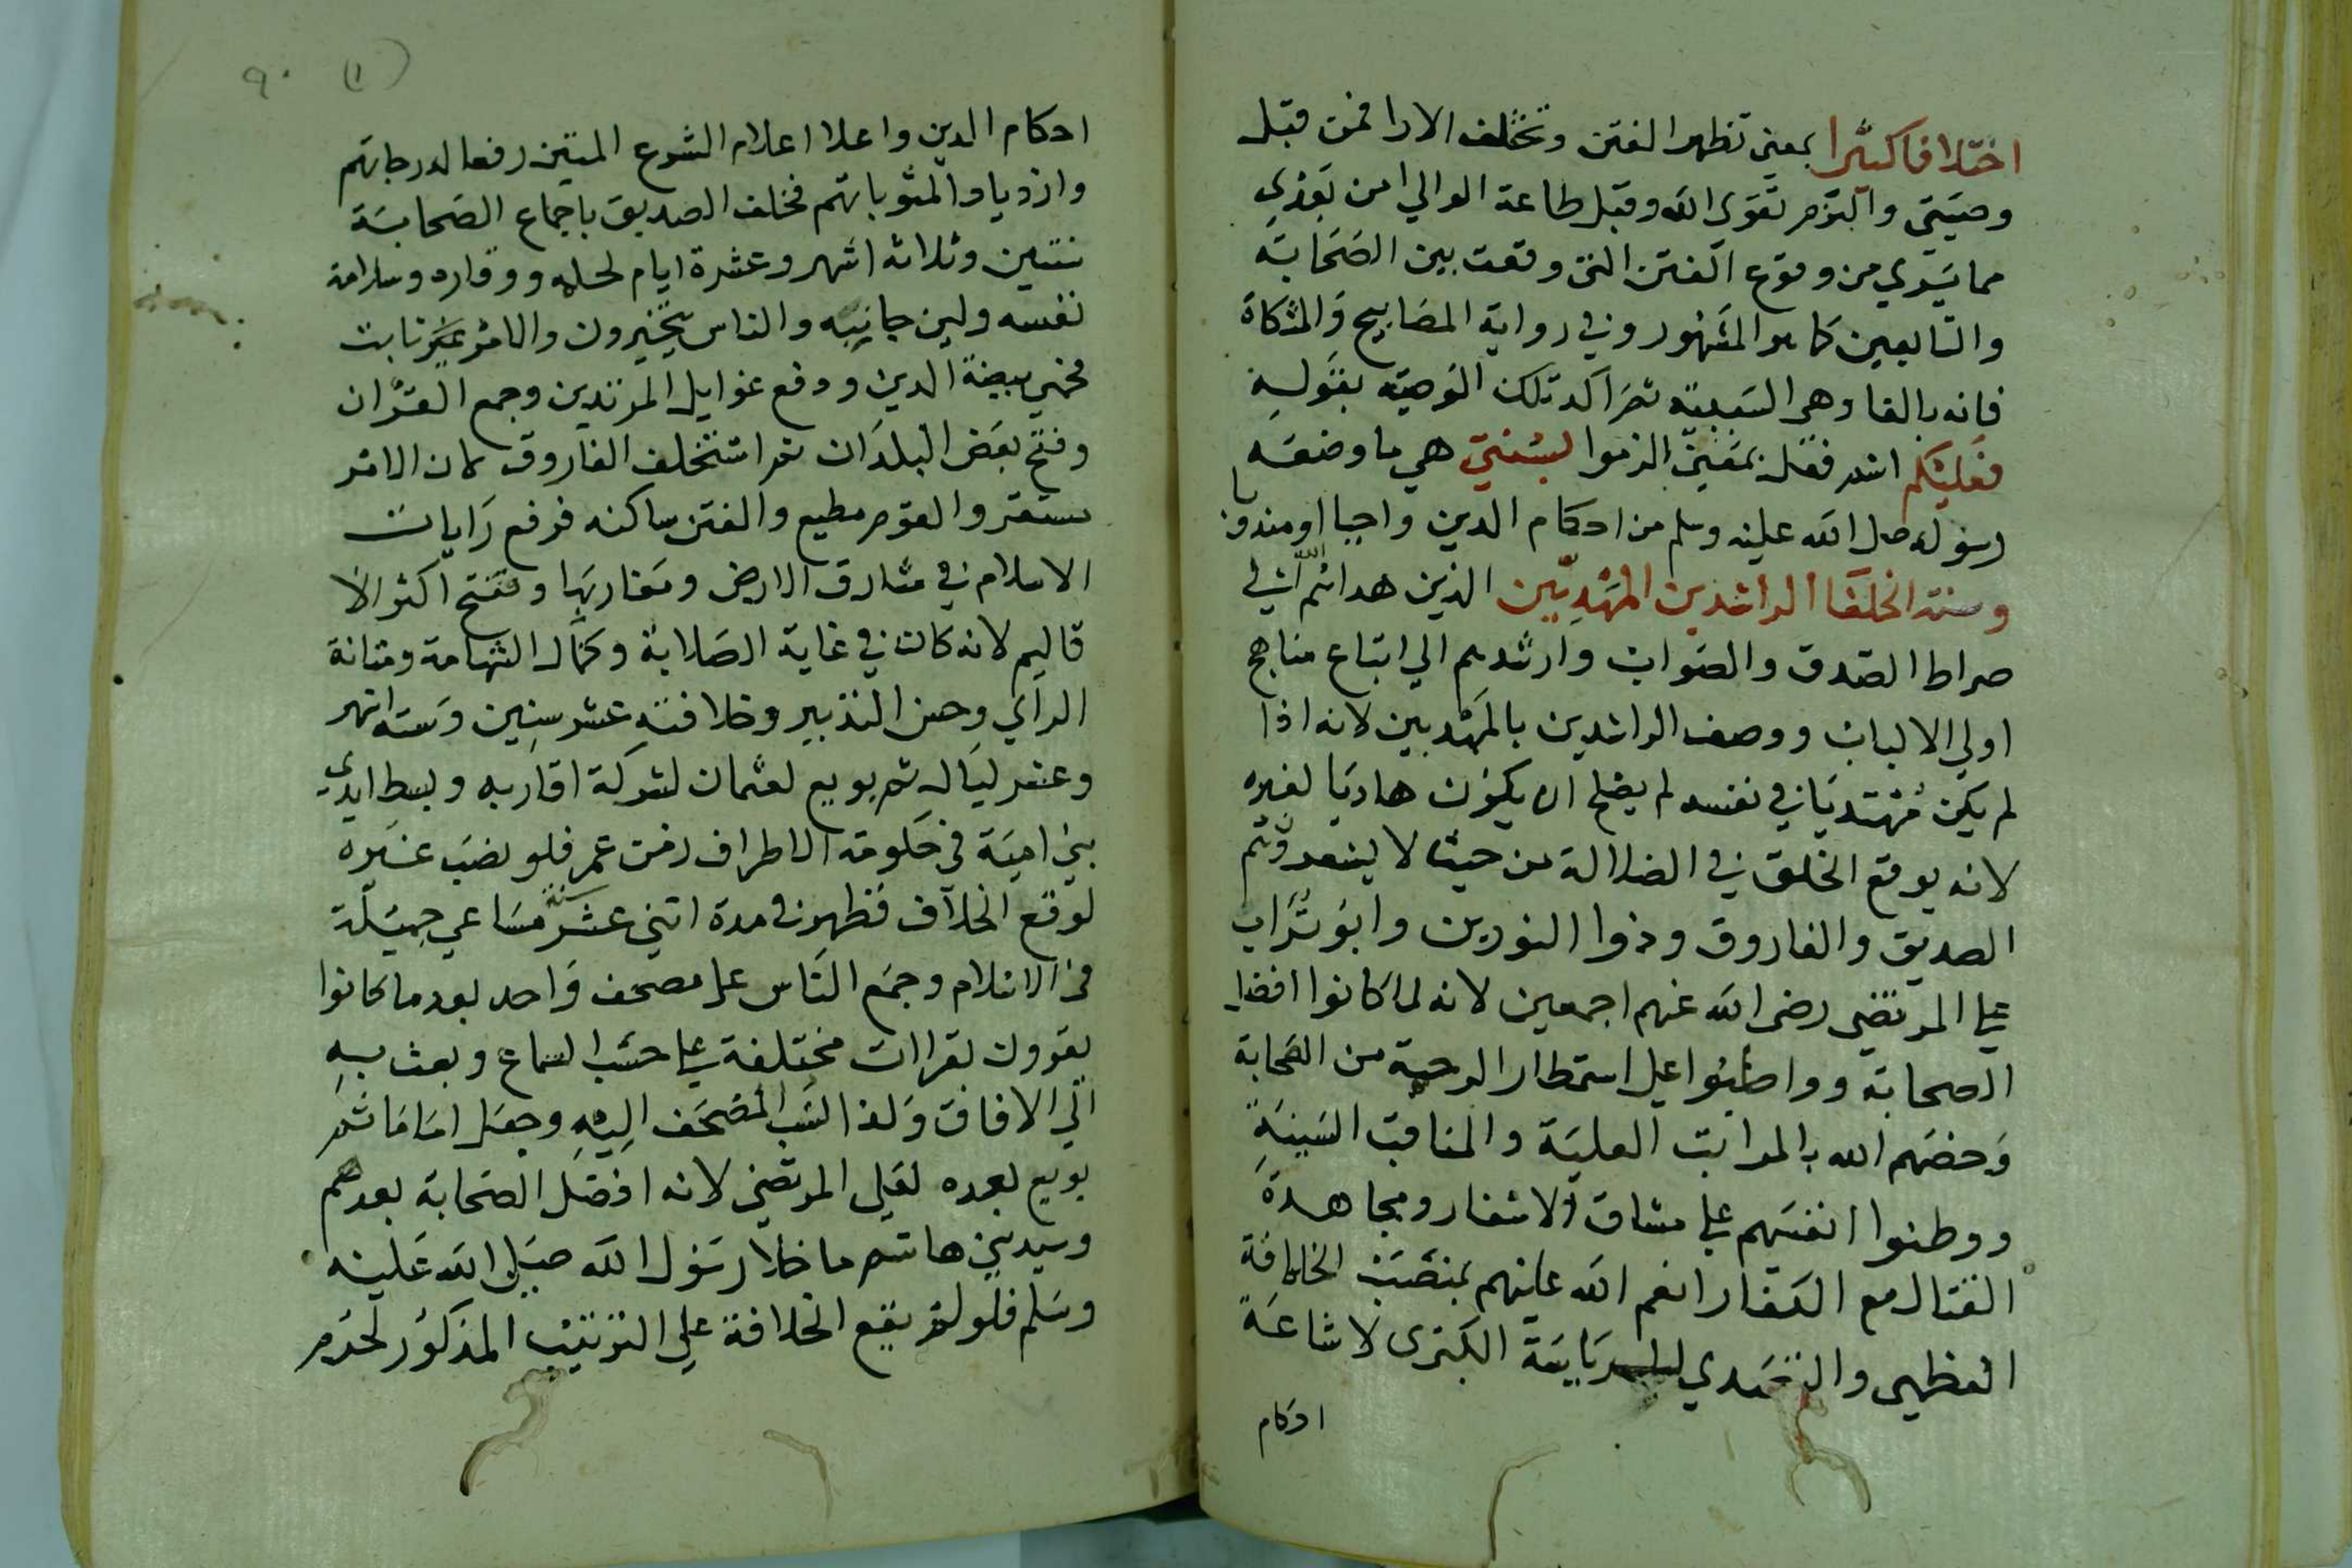 اختلافا كثيرا بمعني تظهر الفتن وتختلف الارا فمن قبل
وصيتي والتزم تقوي الله وقبل طاعة الوالي امن بعدي
مما يودي من وقوع الفتن التي وقعت بين الصحابة
والتابعين كما هو المشهور وفي رواية المصابيح والمشكاة
فانه بالفا وهي السببية ثم اكد تلك الوصية بقوله
فعليكم اسم فعل بمعني الزموا بسنتي هي ما وضعه
رسول الله صلي الله عليه وسلم من احكام الدين واجبا او مندوبا
وسنة الخلفا الراشدين المهديين الذين هداهم الله الي
صراط الصدق والصواب وارشدهم الي اتباع مناهج
اولي الالباب ووصف الراشدين بالمهديين لانه اذا
لم يكن مهتديا في نفسه لم يصلح ان يكون هاديا لغيره
لانه يوقع الخلق في الضلالة من حيث لا يشعر وهم
الصديق والفاروق وذوا النورين وابو تراب
علي المرتضي رضي الله عنهم اجمعين لانه لما كانوا افضل
الصحابة وواظبوا علي استمطار الرحمة من الصحابة
وخصهم الله بالمراتب العلية والمناقب السنية
ووطنوا انفسهم علي مشاق الاسفار ومجاهدة
القتال مع الكفار انعم الله عليهم بمنصب الخلافة
العظمي والتصدي للرياسة الكبري لاشاعة
احكام
(١) ٩٠
احكام الدين واعلا اعلام الشرع المتين رفعا لدرجاتهم
وازديادا لمثوباتهم فخلف الصديق باجماع الصحابة
سنتين وثلاثة اشهر وعشرة ايام لحلمه ووقاره وسلامة
نفسه ولين جانبه والناس يتحيرون والامر غير ثابت
فحمي بيضة الدين ودفع غوايل المرتدين وجمع القران
وفتح بعض البلدان ثم استخلف الفاروق لان الامر
مستقر والقوم مطيع والفتن ساكنه فرفع رايات
الاسلام في مشارق الارض ومغاربها وفتح اكثر الا
قاليم لانه كان في غاية الصلابة وكمال الشهامة ومتانة
الراي وحسن التدبير وخلافته عشر سنين وستة اشهر
وعشر ليال ثم بويع لعثمان لشوكة اقاربه وبسط ايدي
بني امية في حكومة الاطراف زمن عمر فلو نصب غيره
لوقع الخلاف فظهر في مدة اثني عشر سنة مساعي جميلة
في الاسلام وجمع الناس علي مصحف واحد بعد ما كانوا
يقرون بقراات مختلفة علي حسب السماع وبعث به
الي الافاق ولذا نسب المصحف اليه وجعل اماما ثم
بويع بعده لعلي المرتضي لانه افضل الصحابة بعدهم
وسيد بني هاشم ما خلا رسول الله صلي الله عليه
وسلم فلو لم يقع الخلافة علي الترتيب المذكور لحرم